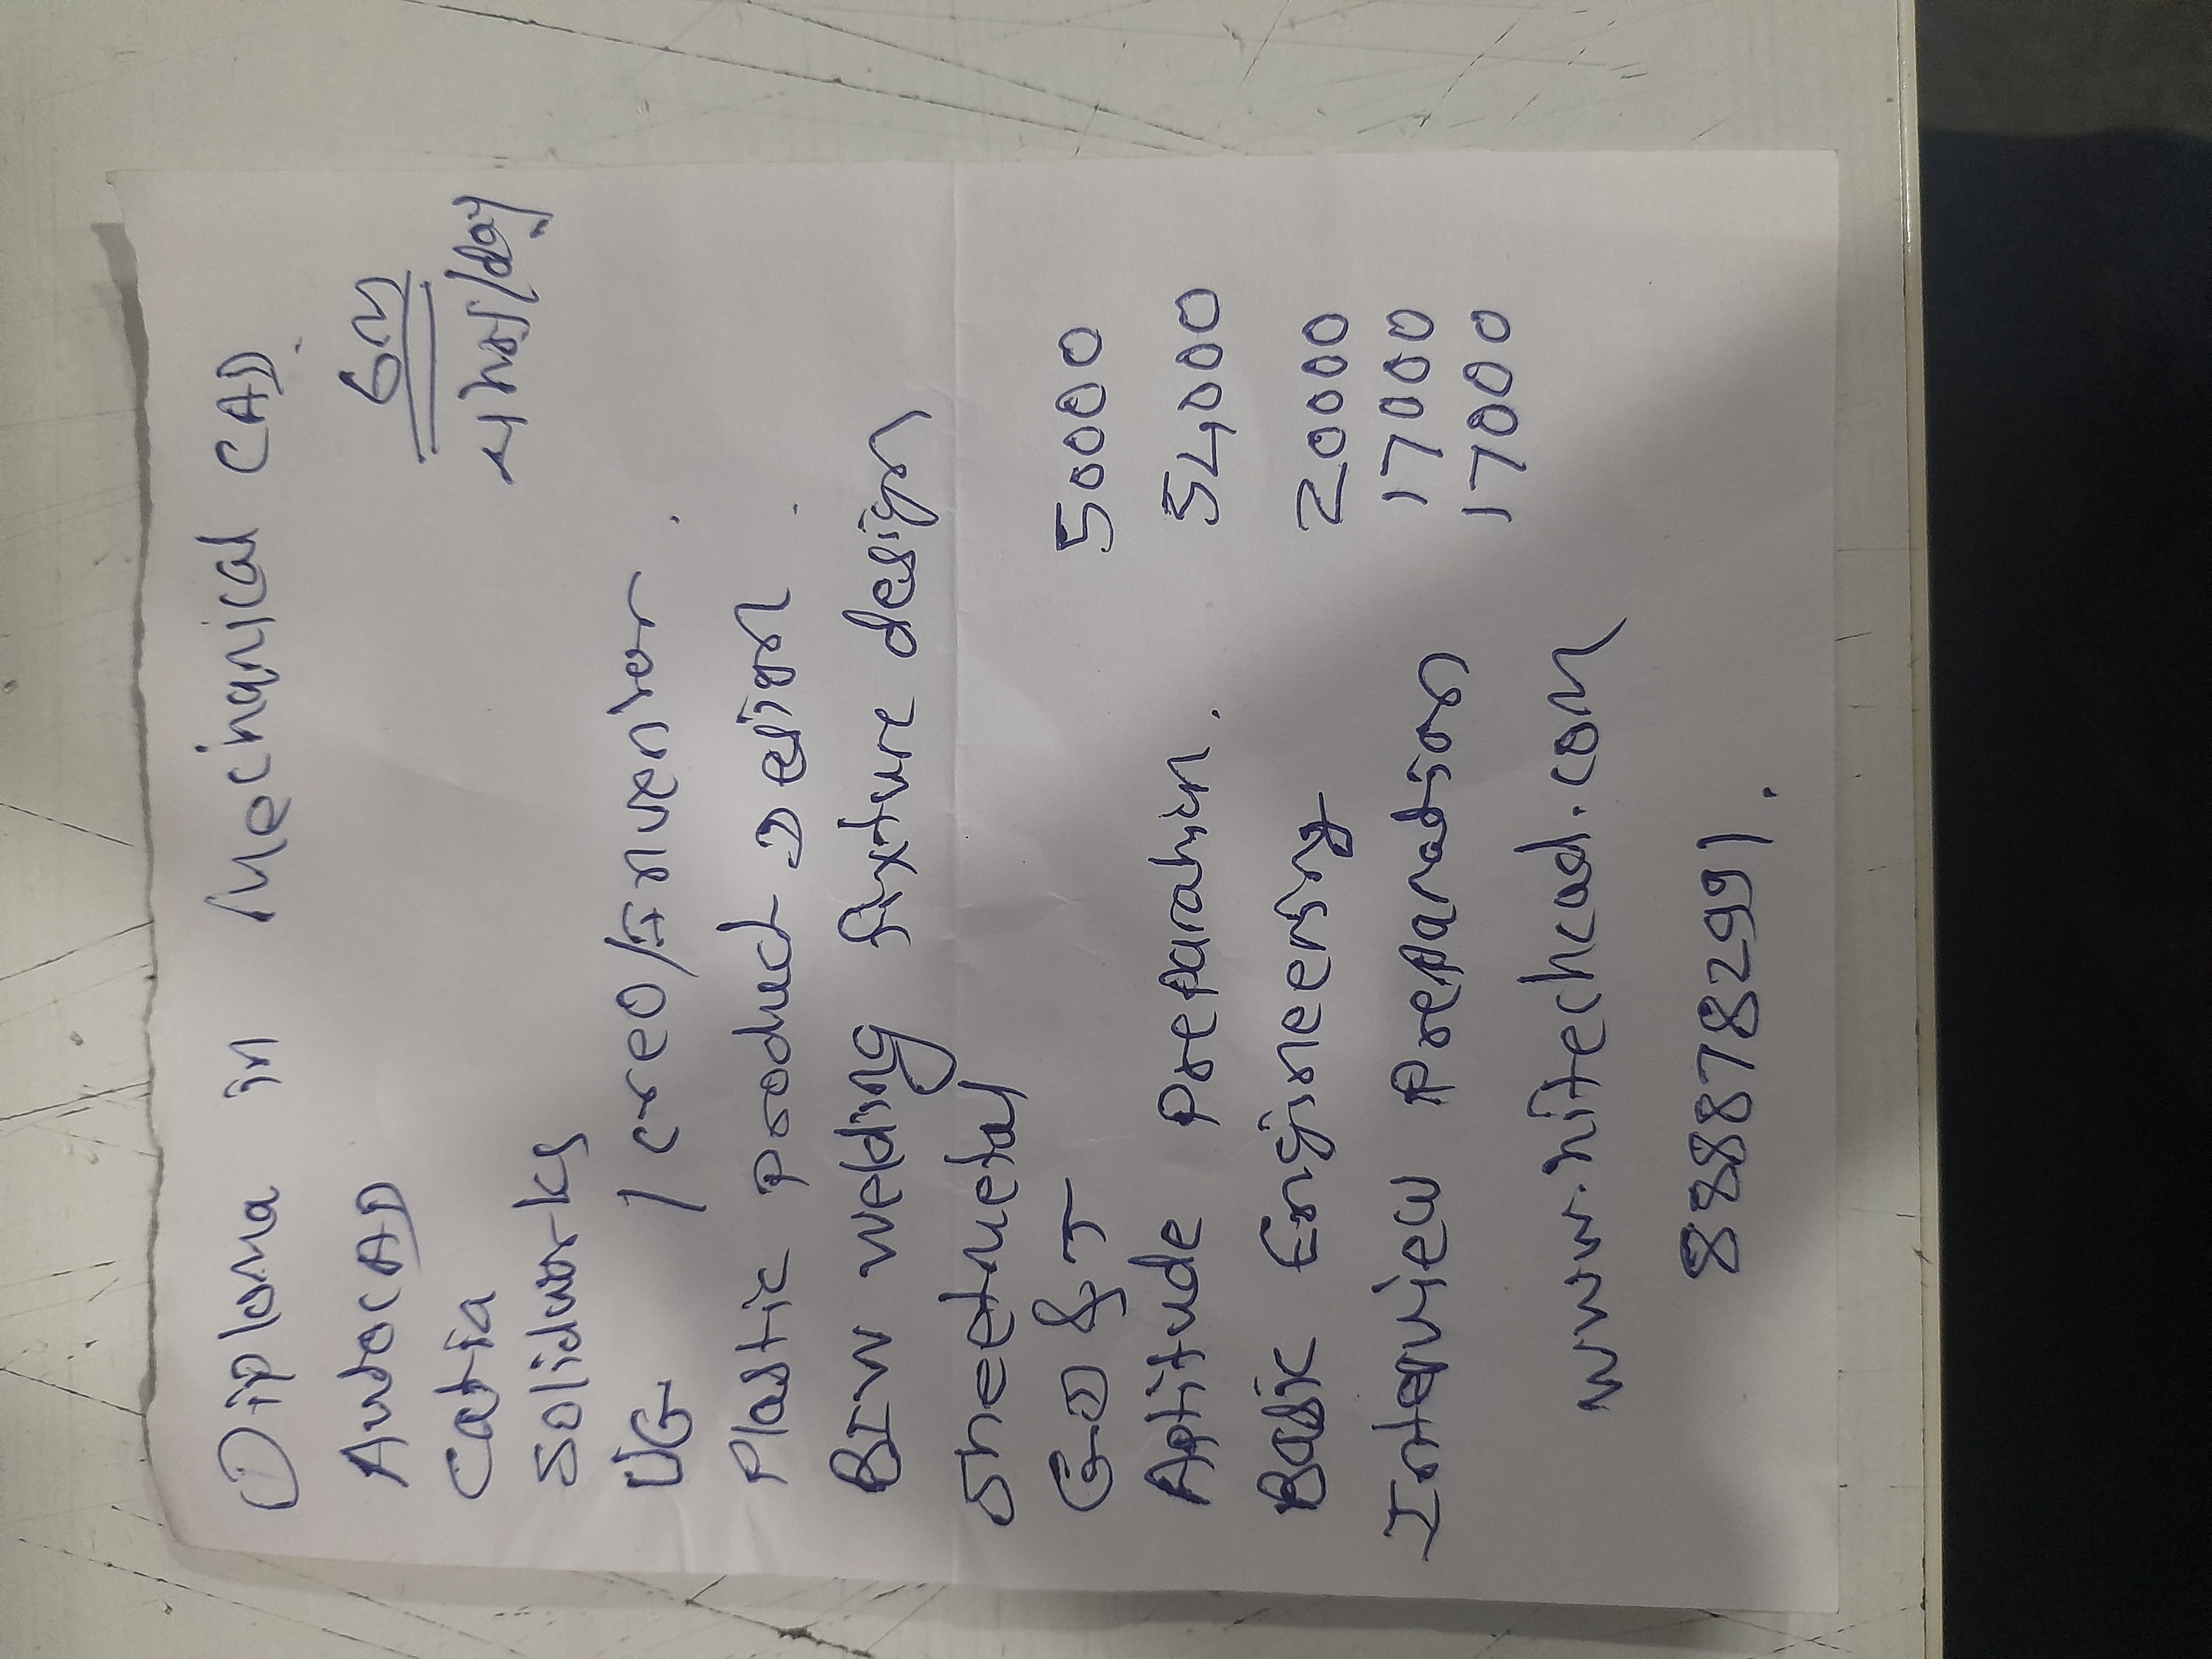 Diploma in Mechanical CAD.
AutoCAD 6M
Catia 4 hrs/day
Solidworks
UG / creo/Inventor
Plastic product Desion
BIW welding fixture design
Sheetmetal
GD & T 50000
Aptitude Preparation. 54000
Basic Engineering 20000
Interview Preparation 17000
17000
www.hitechcad.com
8888782991.